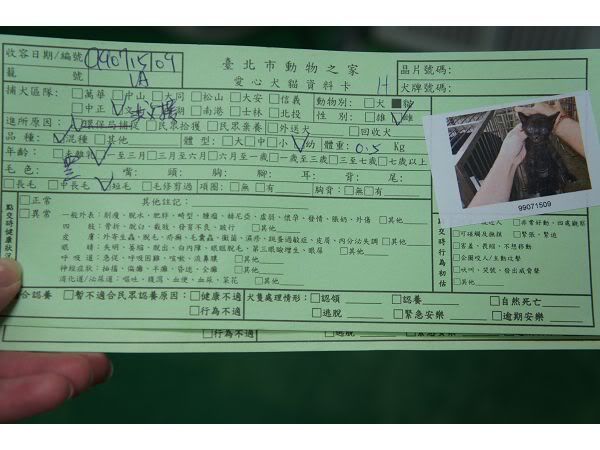 收容日期/編號 臺北市動物之家 晶片號碼:
籠 號 1A 愛心犬貓資料卡 H 犬牌號碼:
捕犬區隊: □萬華 □中山 □大同 □松山 □大安 □信義 動物別: □犬 ■貓
□中正 □南港 □士林 □北投 性 別: □雄 □雌
進所原因: □環保局捕捉 □民眾拾獲 □民眾棄養 □外送犬 □回收犬
品 種: □混種 □其他 體 型: □大 □中 □小 □幼 體重: 0.5 kg
年齡: □未離乳 □一至三月 □三月至六月 □六月至一歲 □一歲至三歲 □三至七歲 □七歲以上
毛 色: 黑 嘴: 頭: 胸: 腳: 耳: 背: 尾:
□長毛 □中長毛 □短毛 □毛修剪過 項圈: □無 □有: 胸背: □無 □有:
99071509
點交時健康狀況
□正常 其他註記:
□異常 一般外表: 削瘦、脫水、肥胖、畸型、腫瘤、赫尼亞、虛弱、懷孕、發情、脹奶、外傷 □其他
四 肢: 骨折、脫臼、截肢、發育不良、跛行 □其他
皮 膚: 外寄生蟲、脫毛、疥癬、毛囊蟲、黴菌、濕疹、跳蚤過敏症、皮屑、內分泌失調 □其他
眼睛: 失明、萎縮、脫出、白內障、眼瞼脫毛、第三眼瞼增生、眼屎 □其他
呼吸道: 急促、呼吸困難、咳嗽、流鼻膿 □其他
神經症狀: 抽搐、痲痺、半癱、昏迷、全癱 □其他
消化道/泌尿道: 嘔吐、積瀉、血便、血尿、菜花 □其他
點交時行為初估
□非常好動、四處觀察
□可碰觸及撫摸 □緊張、緊迫
□害羞、長縮、不想移動
□企圖咬人/主動攻擊
□吠叫、哭號、發出威脅聲
□其他
合認養 □暫不適合民眾認養原因: □健康不適 犬隻處理情形: □認領 □認養 □自然死亡
□行為不適 □逃脫 □緊急安樂 □逾期安樂
□行為不適 □逃脫 □緊急安樂 □逾期安樂